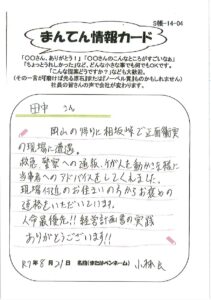 S帳-14-04
まんてん情報カード
「〇〇さん、ありがとう!」「〇〇さんのこんなところがすごいなぁ」
「ちょっとうれしかった」など、どんな小さな事でも何でもOKです。
「こんな提案どうですか?」なども大歓迎。
(その一言が「磨けば光る原石」または「ノーベル賞」ものかもしれません)
社員の皆さんの声で会社が変わります。
田中 さん
岡山の帰りに相坂峠で正面衝突
の現場に遭遇。
救急、警察への連絡、ケガ人を動かさな様に
当事者へのアドバイスをしてくれました。
現場付近のお住まいの方からお褒めの
連絡をいただいています。
人命最優先!! 経営計画書の実践
ありがとうございます!!
R7年 8月 21日 名前(またはペンネーム) 小林